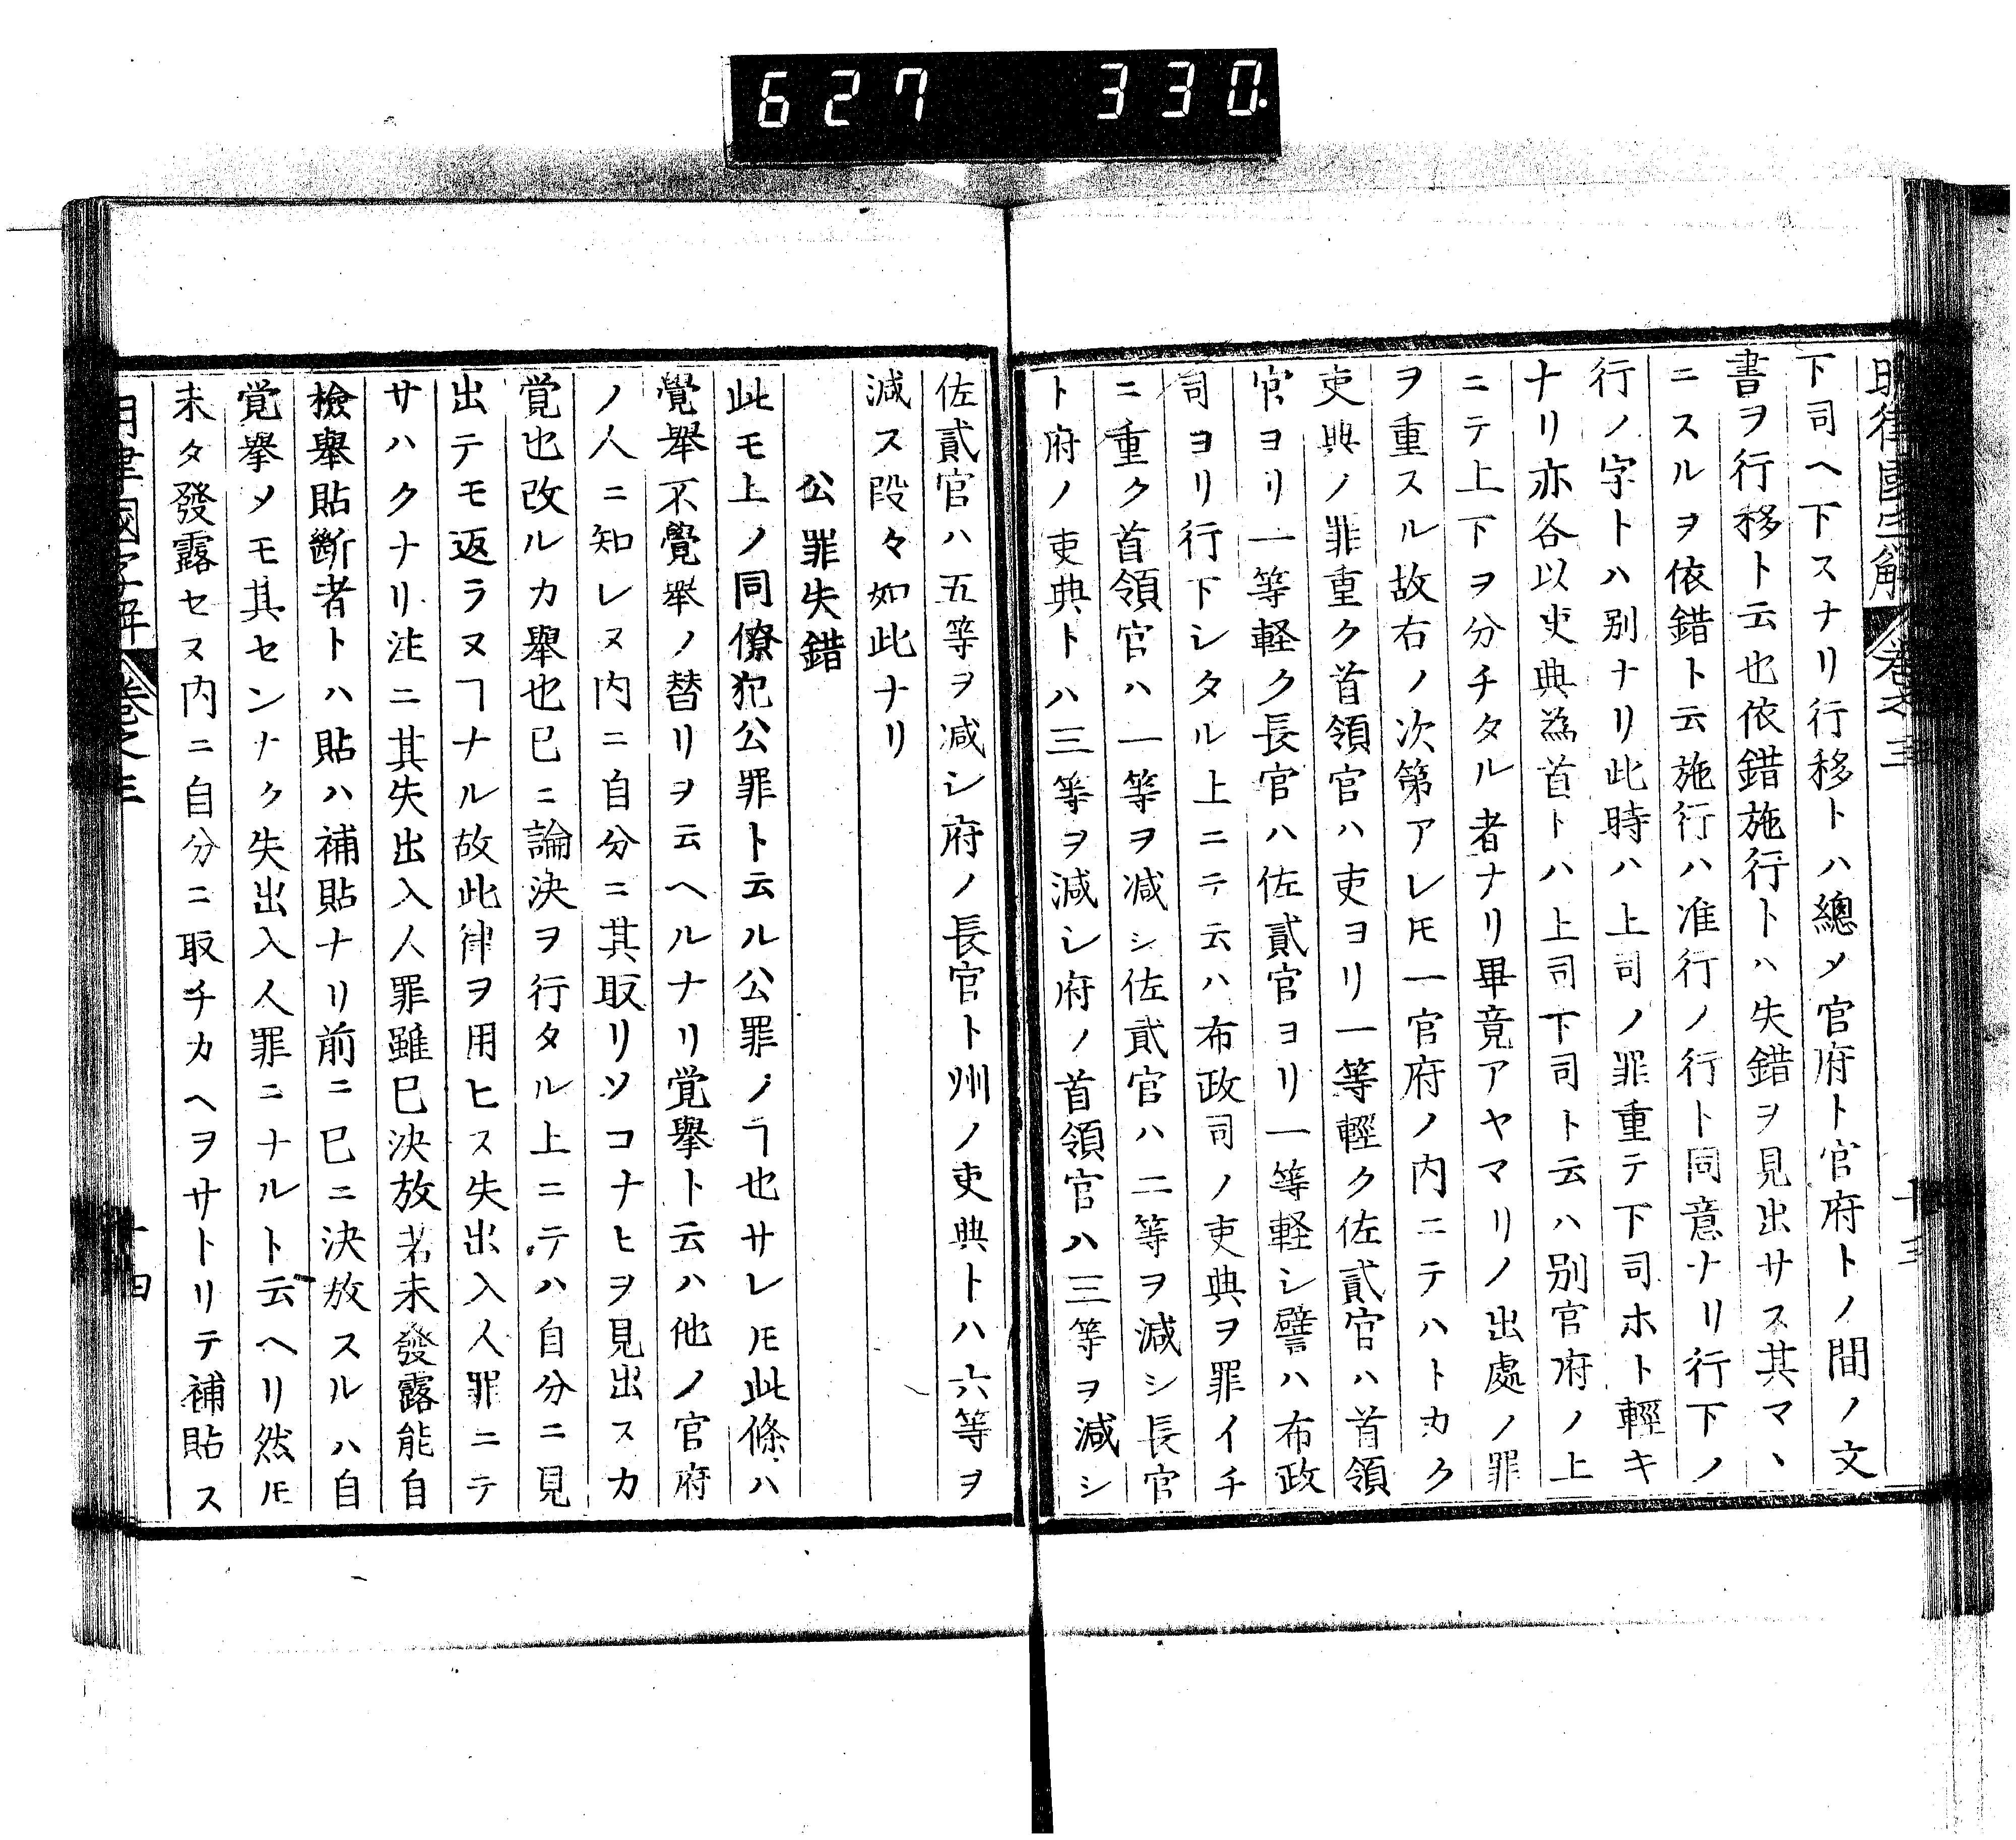 627 330.
明律國字解 卷之三 十三
下司ヘ下スナリ行移トハ總メ官府ト官府トノ間ノ文
書ヲ行移ト云也依錯施行トハ失錯ヲ見出サス其マヽ
ニスルヲ依錯ト云施行ハ准行ノ行ト同意ナリ行下ノ
行ノ字トハ別ナリ此時ハ上司ノ罪重テ下司ホト輕キ
ナリ亦各以吏典為首トハ上司下司ト云ハ別官府ノ上
ニテ上下ヲ分チタル者ナリ畢竟アヤマリノ出處ノ罪
ヲ重スル故右ノ次第アレ𪜈一官府ノ内ニテハトカク
吏典ノ罪重ク首領官ハ吏ヨリ一等輕ク佐貳官ハ首領
官ヨリ一等軽ク長官ハ佐貳官ヨリ一等軽シ譬ハ布政
司ヨリ行下シタル上ニテ云ハ布政司ノ吏典ヲ罪イチ
ニ重ク首領官ハ一等ヲ减シ佐貳官ハ二等ヲ減シ長官
ト府ノ吏典トハ三等ヲ減シ府ノ首領官ハ三等ヲ減シ
佐貳官ハ五等ヲ减シ府ノ長官ト州ノ吏典トハ六等ヲ
減ス段々如此ナリ
公罪失錯
此モ上ノ同僚犯公罪ト云ル公罪ノヿ也サレ𪜈此條ハ
覺舉不覺舉ノ替リヲ云ヘルナリ覚擧ト云ハ他ノ官府
ノ人ニ知レヌ内ニ自分ニ其取リソコナヒヲ見出スカ
覚也改ルカ舉也已ニ論決ヲ行タル上ニテハ自分ニ見
出テモ返ラヌヿナル故此律ヲ用ヒス失出入人罪ニテ
サハクナリ注ニ其失出入人罪雖已决放若未發露能自
檢舉貼斷者トハ貼ハ補貼ナリ前ニ已ニ決放スルハ自
覚擧メモ其センナク失出入人罪ニナルト云ヘリ然𪜈
未タ發露セヌ内ニ自分ニ取チカヘヲサトリテ補貼ス
明律國字解 卷之三 十四